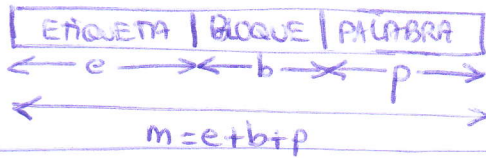 ETIQUETA | BLOQUE | PALABRA
e b p
m = e + b + p